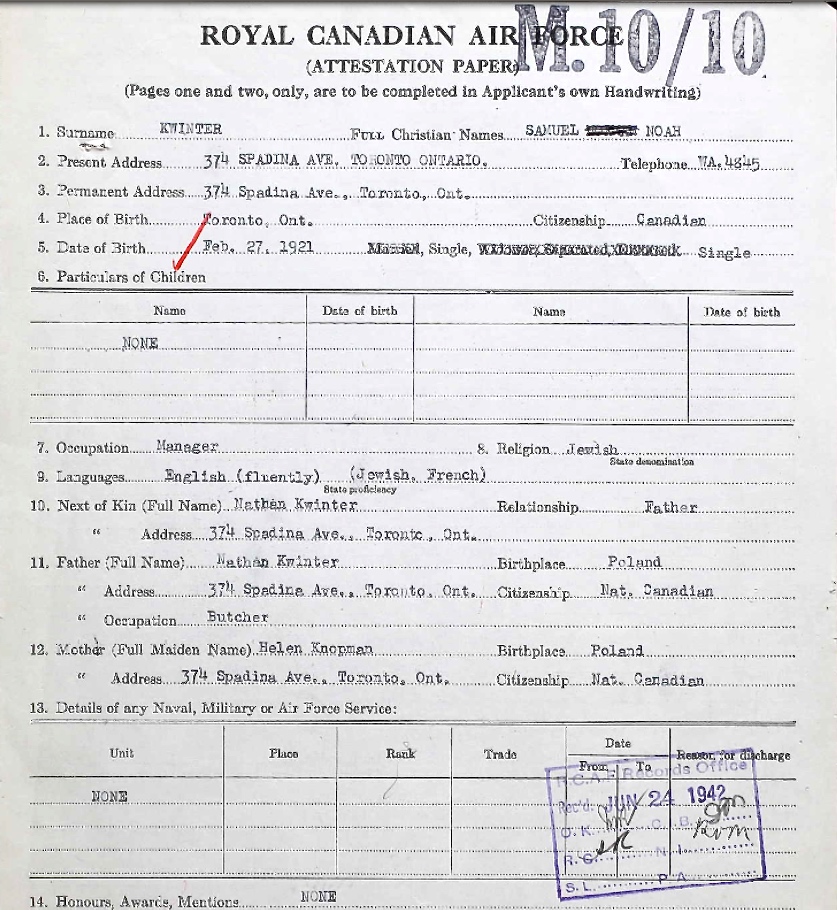 M.10/10
ROYAL CANADIAN AIR FORCE
(ATTESTATION PAPER)
(Pages one and two, only, are to be completed in Applicant's own Handwriting)
1. Surname KWINTER FULL Christian Names SAMUEL NOAH
2. Present Address 374 SPADINA AVE. TORONTO ONTARIO. Telephone WA.4845
3. Permanent Address 374 Spadina Ave., Toronto, Ont.
4. Place of Birth Toronto, Ont. Citizenship Canadian
5. Date of Birth Feb. 27, 1921 Married, Single, Widower, Separated, Single
6. Particulars of Children
Name Date of birth Name Date of birth
NONE
7. Occupation Manager 8. Religion Jewish
State denomination
9. Languages English (fluently) (Jewish, French)
State proficiency
10. Next of Kin (Full Name) Nathan Kwinter Relationship Father
" Address 374 Spadina Ave., Toronto, Ont.
11. Father (Full Name) Nathan Kwinter Birthplace Poland
" Address 374 Spadina Ave., Toronto, Ont. Citizenship Nat. Canadian
" Occupation Butcher
12. Mother (Full Maiden Name) Helen Knopman Birthplace Poland
" Address 374 Spadina Ave., Toronto, Ont. Citizenship Nat. Canadian
13. Details of any Naval, Military or Air Force Service:
Unit Place Rank Trade Date From To Reason for discharge
NONE
R.C.A.F. Records Office
Rec'd. JUN 24 1942
O.K. C.B.
R.G. N.I.
S.L. P.A.
14. Honours, Awards, Mentions NONE